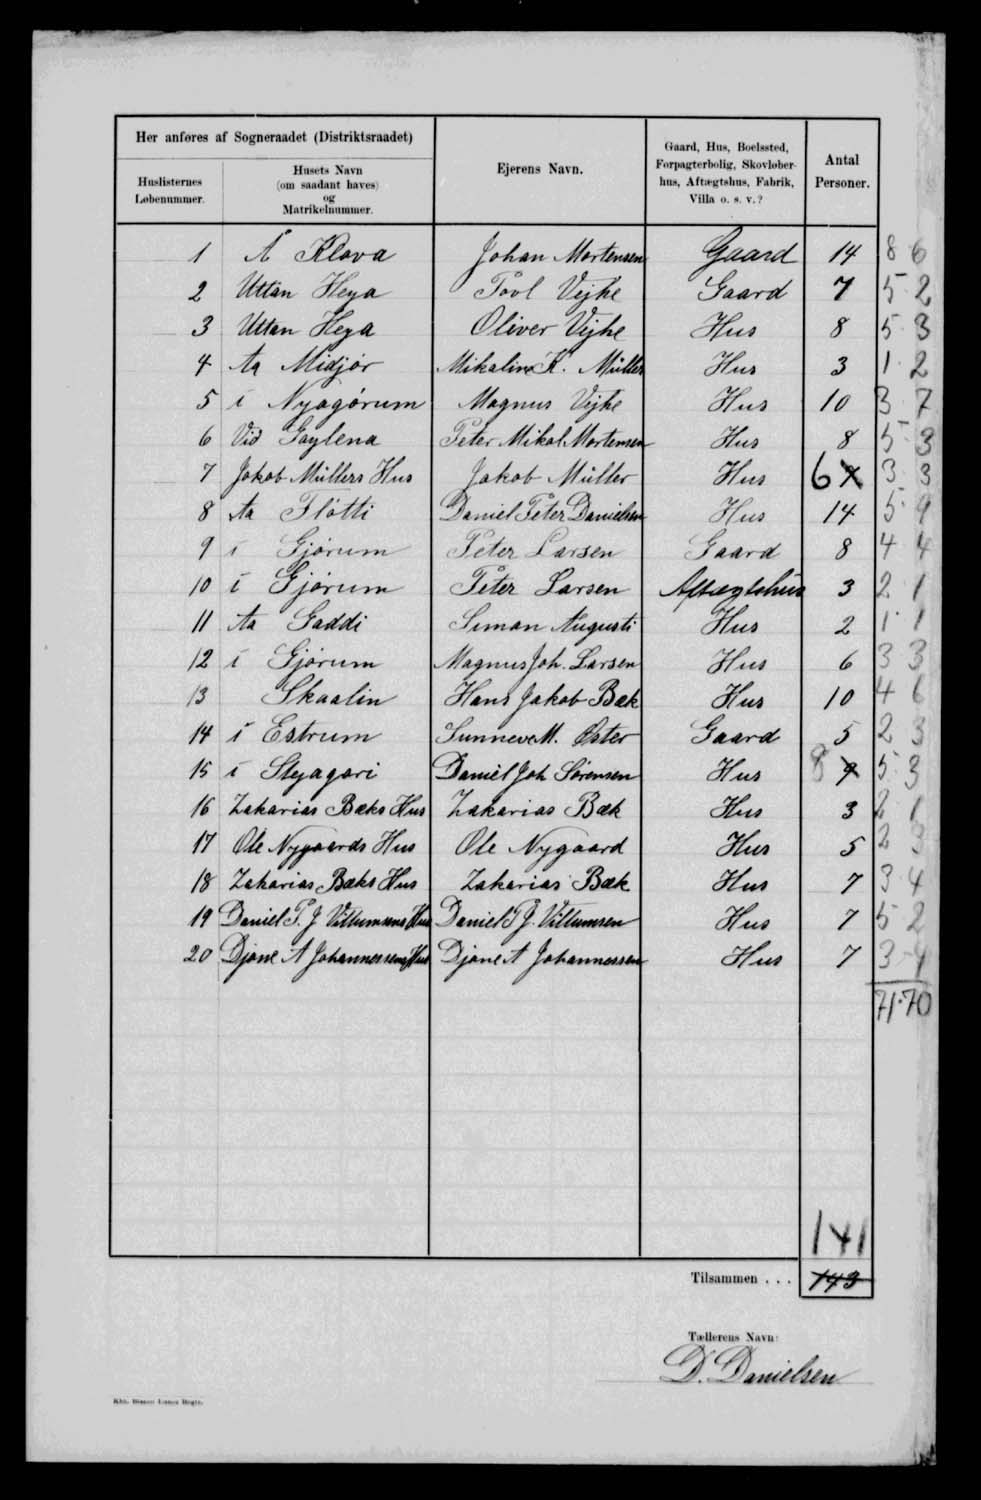 Her anføres af Sogneraadet (Distriktsraadet)
Huslisternes Løbenummer.
Husets Navn (om saadant haves) og Matrikelnummer.
Ejerens Navn.
Gaard, Hus, Boelssted, Forpagterbolig, Skovløberhus, Aftægtshus, Fabrik, Villa o. s. v.?
Antal Personer.
1 Á Klova Johan Mortensen Gaard 14 8 6
2 Uttan Heya Povl Vejhe Gaard 7 5 2
3 Uttan Heya Oliver Vejhe Hus 8 5 3
4 Aa Midjør Mikaline K. Müller Hus 3 1 2
5 i Nyagørum Magnus Vejhe Hus 10 3 7
6 Vid Gaylena Peter Mikal Mortensen Hus 8 5 3
7 Jakob Müllers Hus Jakob Müller Hus 6 3 3
8 Aa Fløtti Daniel Peter Danielsen Hus 14 5 9
9 i Gjørum Peter Larsen Gaard 8 4 4
10 i Gjørum Peter Larsen Aftægtshus 3 2 1
11 Aa Gaddi Simon Augusti Hus 2 1 1
12 i Gjørum Magnus Joh. Larsen Hus 6 3 3
13 Skaalin Hans Jakob Bæk Hus 10 4 6
14 i Estrum Sunneva M. Øster Gaard 5 2 3
15 i Steyagari Daniel Joh Sørensen Hus 8 9 5 3
16 Zakarias Bæks Hus Zakarias Bæk Hus 3 2 1
17 Ole Nygaards Hus Ole Nygaard Hus 5 2 3
18 Zakarias Bæks Hus Zakarias Bæk Hus 7 3 4
19 Daniel P. J Villumsens Hus Daniel P J. Villumsen Hus 7 5 2
20 Djone A Johannessens Hus Djone A Johannessen Hus 7 3 4
71·70
141
Tilsammen . . . 143
Tællerens Navn:
D. Danielsen
Kbh. Bianco Lunos Bogtr.